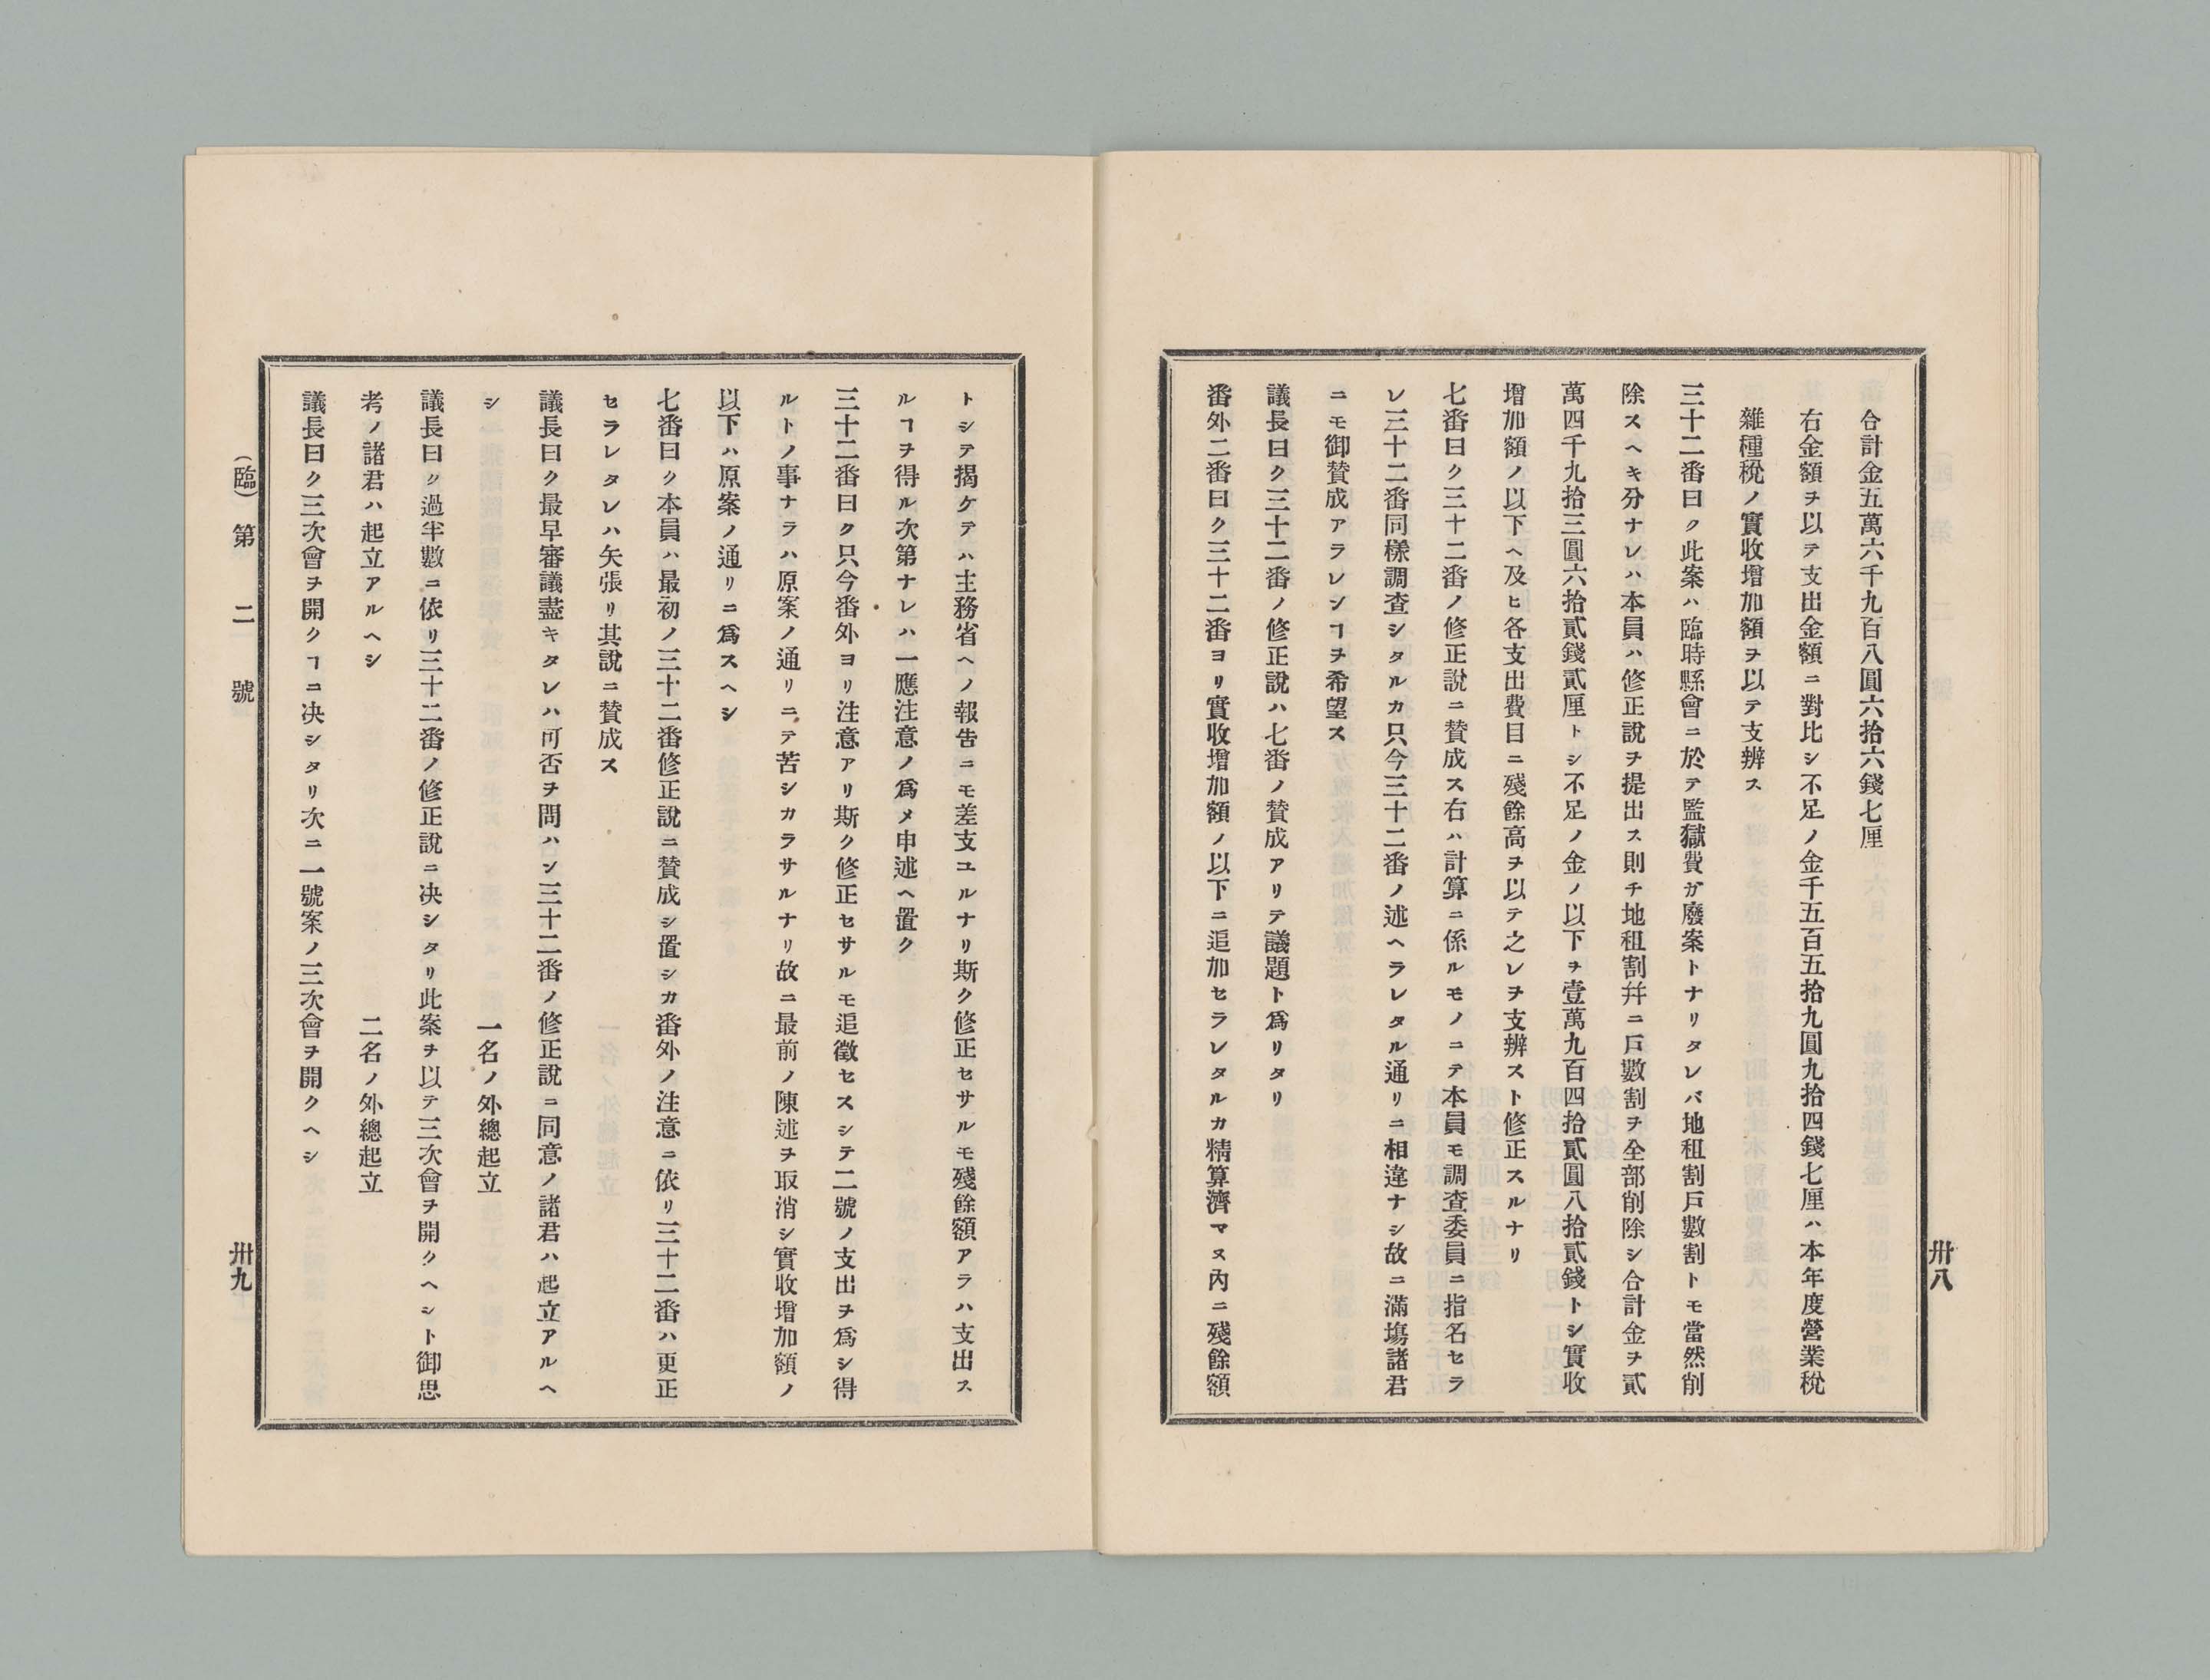 合計金五萬六千九百八圓六拾六錢七厘
右金額ヲ以テ支出金額ニ對比シ不足ノ金千五百五拾九圓九拾四錢七厘ハ本年度營業稅
雜種稅ノ實收增加額ヲ以テ支辨ス
三十二番曰ク此案ハ臨時縣會ニ於テ監獄費ガ廢案トナリタレバ地租割戶數割トモ當然削
除スヘキ分ナレハ本員ハ修正說ヲ提出ス則チ地租割幷ニ戶數割ヲ全部削除シ合計金ヲ貳
萬四千九拾三圓六拾貳錢貳厘トシ不足ノ金ノ以下ヲ壹萬九百四拾貳圓八拾貳錢トシ實收
增加額ノ以下ヘ及ヒ各支出費目ニ殘餘高ヲ以テ之レヲ支辨スト修正スルナリ
七番曰ク三十二番ノ修正說ニ賛成ス右ハ計算ニ係ルモノニテ本員モ調査委員ニ指名セラ
レ三十二番同樣調査シタルカ只今三十二番ノ述ヘラレタル通リニ相違ナシ故ニ滿塲諸君
ニモ御賛成アランシヿヲ希望ス
議長曰ク三十二番ノ修正說ハ七番ノ賛成アリテ議題ト爲リタリ
番外二番曰ク三十二番ヨリ實收增加額ノ以下ニ追加セラレタルカ精算濟マヌ內ニ殘餘額
卅八
トシテ揭ケテハ主務省ヘノ報告ニモ差支ユルナリ斯ク修正セサルモ殘餘額アラハ支出ス
ルヿヲ得ル次第ナレハ一應注意ノ爲メ申述ヘ置ク
三十二番曰ク只今番外ヨリ注意アリ斯ク修正セサルモ追徵セスシテ二號ノ支出ヲ爲シ得
ルトノ事ナラハ原案ノ通リニテ苦シカラサルナリ故ニ最前ノ陳述ヲ取消シ實收增加額ノ
以下ハ原案ノ通リニ爲スヘシ
七番曰ク本員ハ最初ノ三十二番修正說ニ賛成シ置シカ番外ノ注意ニ依リ三十二番ハ更正
セラレタレハ矢張リ其說ニ賛成ス
議長曰ク最早審議盡キタレハ可否ヲ問ハン三十二番ノ修正說ニ同意ノ諸君ハ起立アルヘ
シ　一名ノ外總起立
議長曰ク過半數ニ依リ三十二番ノ修正說ニ决シタリ此案ヲ以テ三次會ヲ開クヘシト御思
考ノ諸君ハ起立アルヘシ　二名ノ外總起立
議長曰ク三次會ヲ開クヿニ决シタリ次ニ一號案ノ三次會ヲ開クヘシ
（臨）第二號
卅九